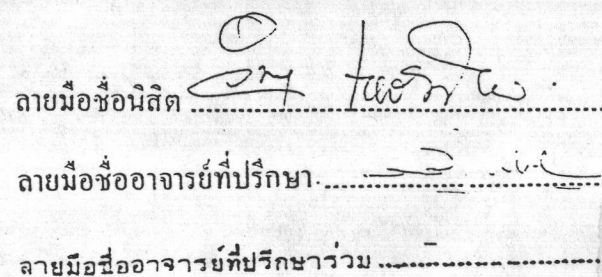 ลายมือชื่อนิสิต
ลายมือชื่ออาจารย์ที่ปรึกษา
ลายมือชื่ออาจารย์ที่ปรึกษาร่วม -